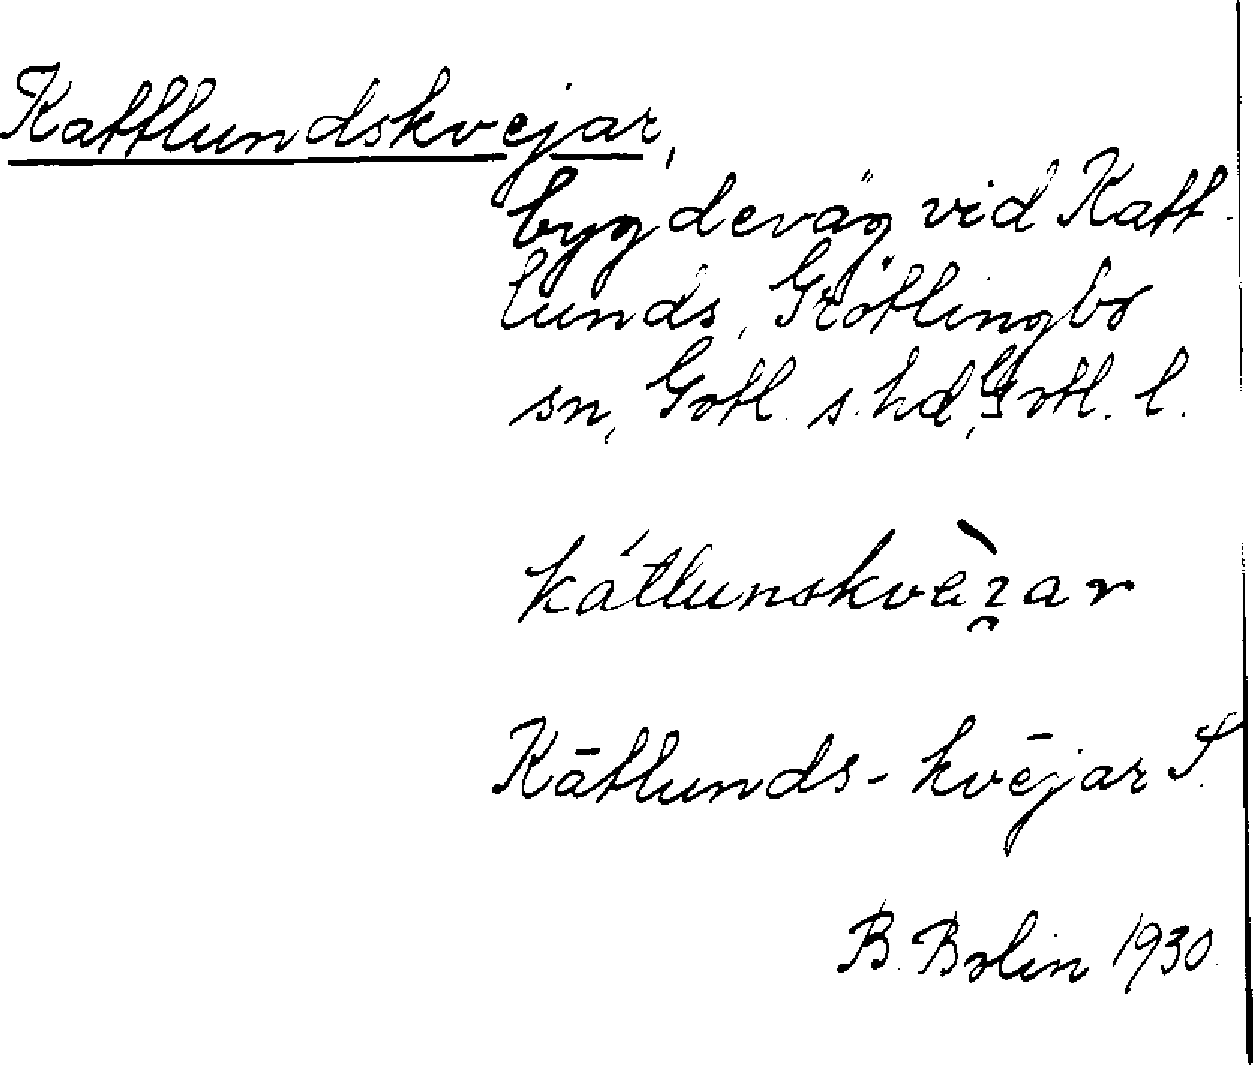 Kattlundskvejar,
bygdeväg vid Katt-
lunds, Grötlingbo
sn, Gotl. s. hd, Gotl. l.
kátlunskvèʒar
Kātlunds-kvējar S.
B. Bolin 1930.